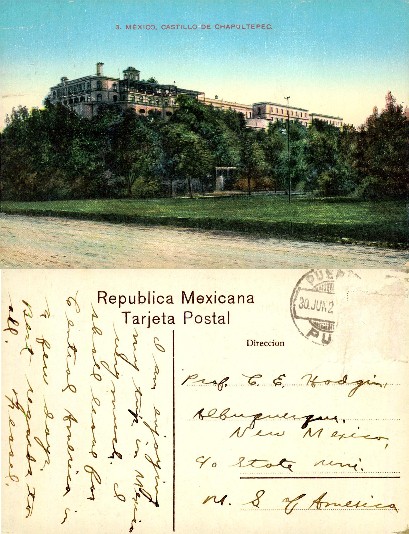 3. MEXICO, CASTILLO DE CHAPULTEPEC.
Republica Mexicana
Tarjeta Postal
Direccion
PUEB
30.JUN.2
PU
I am enjoying
my trip in Mexico
very much. I
shall leave for
Central America in
a few days.
Best regards to
all.
Prof. C. E. Hodgin,
Albuquerque.
New Mexico,
c/o State Uni.
U. S of America